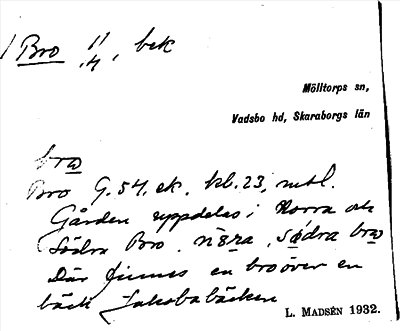 Bro 11/4, bek
Mölltorps sn,
Vadsbo hd, Skaraborgs län
bro
Bro G. 54. ek. kl. 23, mtl.
Gården uppdelas i Norra och
Södra Bro. södra bro
Där finnes en bro över en
bäck Jakobsbäcken
L. MADSÉN 1932.